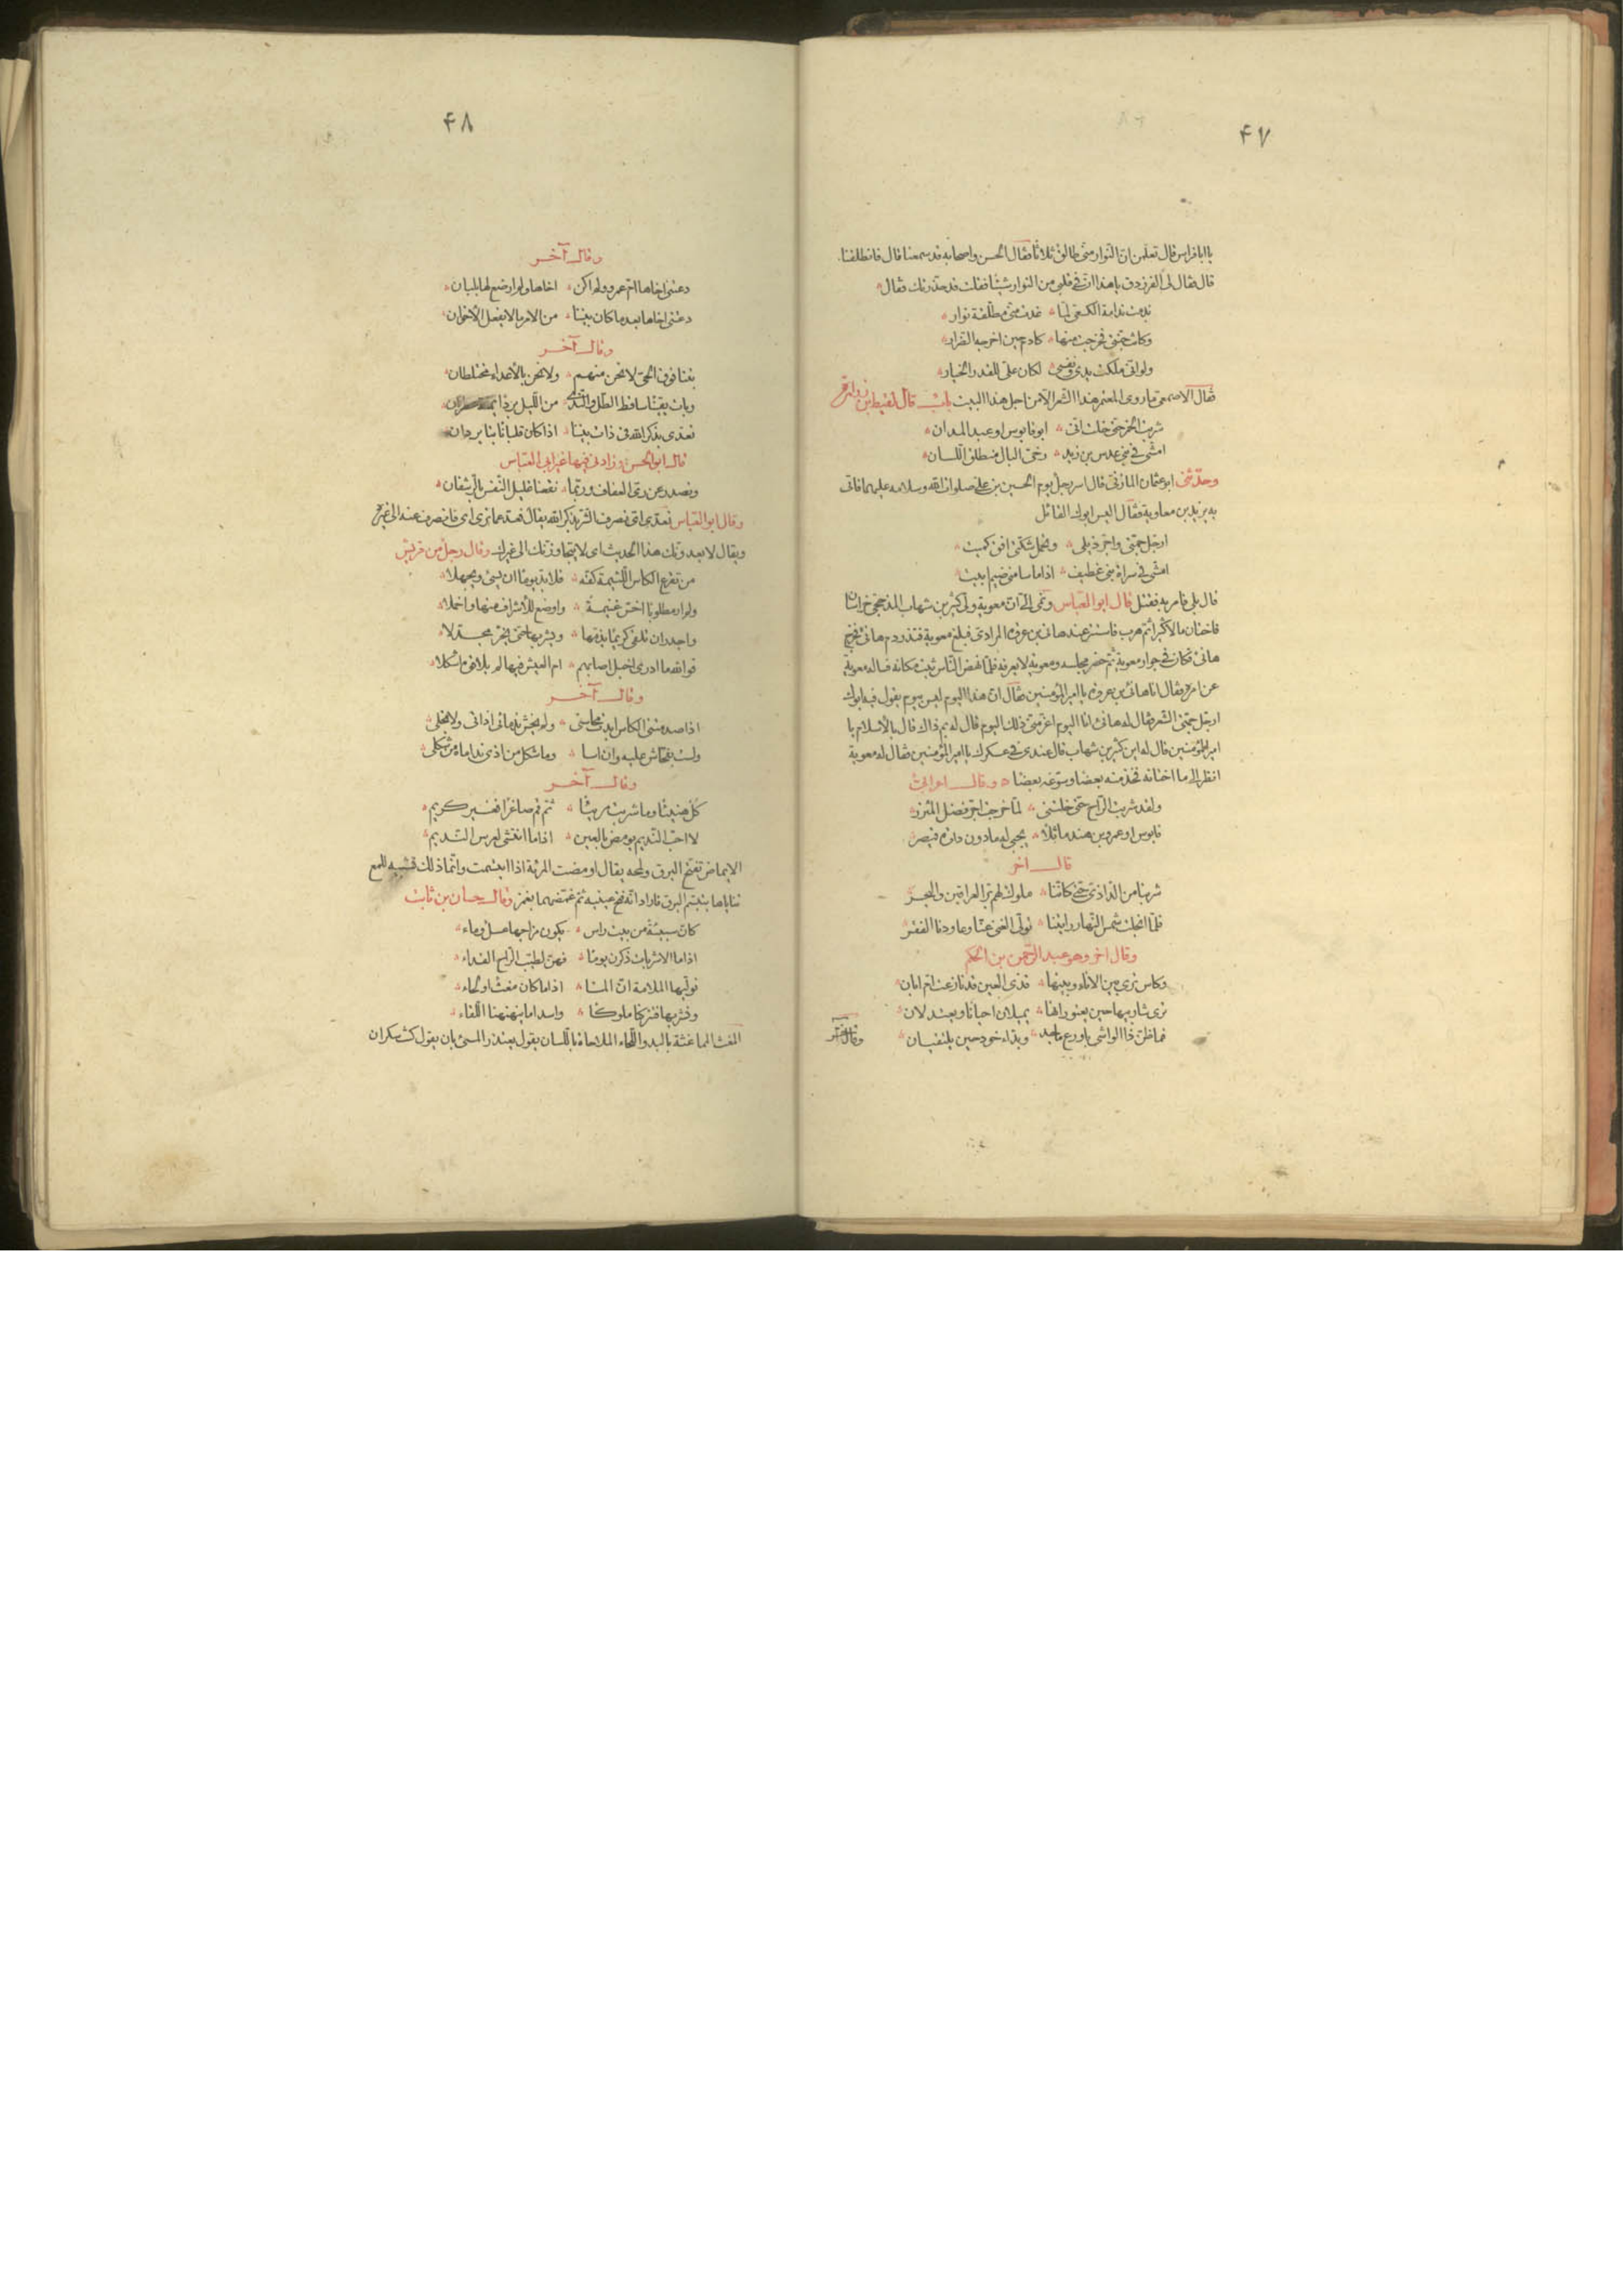 ٤٧
يا ابا فراس قال تعلمن ان النوار منى طالق ثلاثا فقال الحسن واصحابه قد سمعنا قال فانطلقنا
قال فقال لى الفرزدق يا هذا ان فى قلبى من النوار شيئا فقلت قد حذرتك فقال
ندمت ندامة الكسعى لما غدت منى مطلقة نوار
وكانت جنتى فخرجت منها كادم حين اخرجه الضرار
ولو انى ملكت يدى ونفسى لكان على للقدر الخيار
فقال الاصمعى ما روى المعتمر هذا الشعر الا من اجل هذا البيت باب قال لقيط بن زرارة
شربت الخمر حتى خلت انى ابو قابوس او عبد المدان
امشى فى بنى عدس بن زيد رخى البال منطلق اللسان
وحدثنى ابو عثمان المازنى قال اسر رجل يوم الحسين بن على صلوات الله وسلامه عليهما فاتى
به يزيد بن معاوية فقال اليس ابوك القائل
ارجل جمتى واجر ذيلى وتحمل شكتى افق كميت
امشى فى سراة بنى غطيف اذا ما سامنى ضيم ابيت
قال بلى فامر به فقتل قال ابو العباس ونمى الى ان معوية ولى كثير بن شهاب المذحجى خراسان
فاختان مالا كثيرا ثم هرب فاستتر عند هانى بن عروة المرادى فبلغ معوية فنذر دم هانئ فخرج
هانئ فكان فى جوار معوية ثم حضر مجلسه ومعوية لا يعرفه فلما نهض الناس ثبت مكانه فساله معوية
عن امره فقال انا هانئ بن عروة يا امير المؤمنين فقال ان هذا اليوم ليس بيوم يقول فيه ابوك
ارجل جمتى الشعر فقال له هانئ انا اليوم اعز منى ذلك اليوم قال له بم ذاك قال بالاسلام يا
امير المؤمنين قال له اين كثير بن شهاب قال عندى فى عسكرك يا امير المؤمنين فقال له معوية
انظر الى ما اختانه فخذ منه بعضا وسوغه بعضا وقال اعرابى
ولقد شربت الراح حتى خلتنى لما خرجت اجر فضل المئزر
قابوس او عمرو بن هند ماثلا يجبى له ما دون دارة قيصر
قال اخر
شربنا من الداذى حتى كاننا ملوك لهم بر العراقين والبحر
فلما انجلت شمس النهار رايتنا تولى الغنى عنا وعاودنا الفقر
وقال اخر وهو عبد الرحمن بن الحكم
وكاس ترى بين الاناء وبينها قذى العين قد نازعت ام ابان
ترى شاربيها حين يعتورانها يميلان احيانا ويعتدلان
فما ظن ذا الواشى باروع ماجد وبداء خود حين يلتقيان
وقال آخر
٤٨
وقال آخر
دعتنى اخاها ام عمرو ولم اكن اخاها ولم ارضع لها بلبان
دعتنى اخاها بعد ما كان بيننا من الامر ما لا يفعل الاخوان
وقال آخر
بتنا فوق الحى لا نحن منهم ولا نحن بالأعداء مختلطان
وبات يقينا ساقط الطل والندى من الليل بردا
نعدى بذكر الله فى ذات بيننا اذا كان قلبانا بنا يردان
قال ابو الحسن وزادنى فيها غير ابى العباس
ونصدر عن رى العفاف وربما نقعنا غليل النفس بالرشفان
وقال ابو العباس نعدى اى نصرف الشر بذكر الله يقال فعد عما ترى اى فانصرف عنه الى غيره
ويقال لا يعدونك هذا الحديث اى لا يتجاوزنك الى غيرك وقال رجل من قريش
من تقرع الكاس اللئيمة كفه فلا بد يوما ان يسئ ويجهلا
ولم ار مطلوبا اخس غنيمة واوضع للأشراف منها واخملا
واجدر ان تلقى كريما يذمها ويشربها حتى يخر مجدلا
فوالله ما ادرى اخبل اصابهم ام العيش فيها لم يلاقوه اشكلا
وقال آخر
اذا صدمتنى الكاس ابدت محاسنى ولم يخش ندمانى اذاتى ولا بخلى
ولست بفحاش عليه وان اسا وما شكل من اذى نداماه من شكلى
وقال آخر
كل هنيئا وما شربت مريئا ثم قم صاغرا فغير كريم
لا احب النديم يومض بالعين اذا ما انتشى لعرس النديم
الايماض تفتح البرق ولمحه يقال اومضت المرئة اذا ابتسمت وانما ذلك تشبيه للمع
ثناياها بتبسم البرق فاراد انه فتح عينيه ثم غمضهما بغمز وقال حسان بن ثابت
كان سبيئة من بيت راس يكون مزاجها عسل وماء
اذا ما الاشربات ذكرن يوما فهن لطيب الراح الفداء
نوليها الملامة ان المنا اذا ما كان مغث او لحاء
ونشربها فتتركنا ملوكا واسدا ما ينهنهنا اللقاء
المغث المماغثة باليد واللحاء الملاحاة باللسان يقول يعتذر المسئ بان يقول كنت سكران